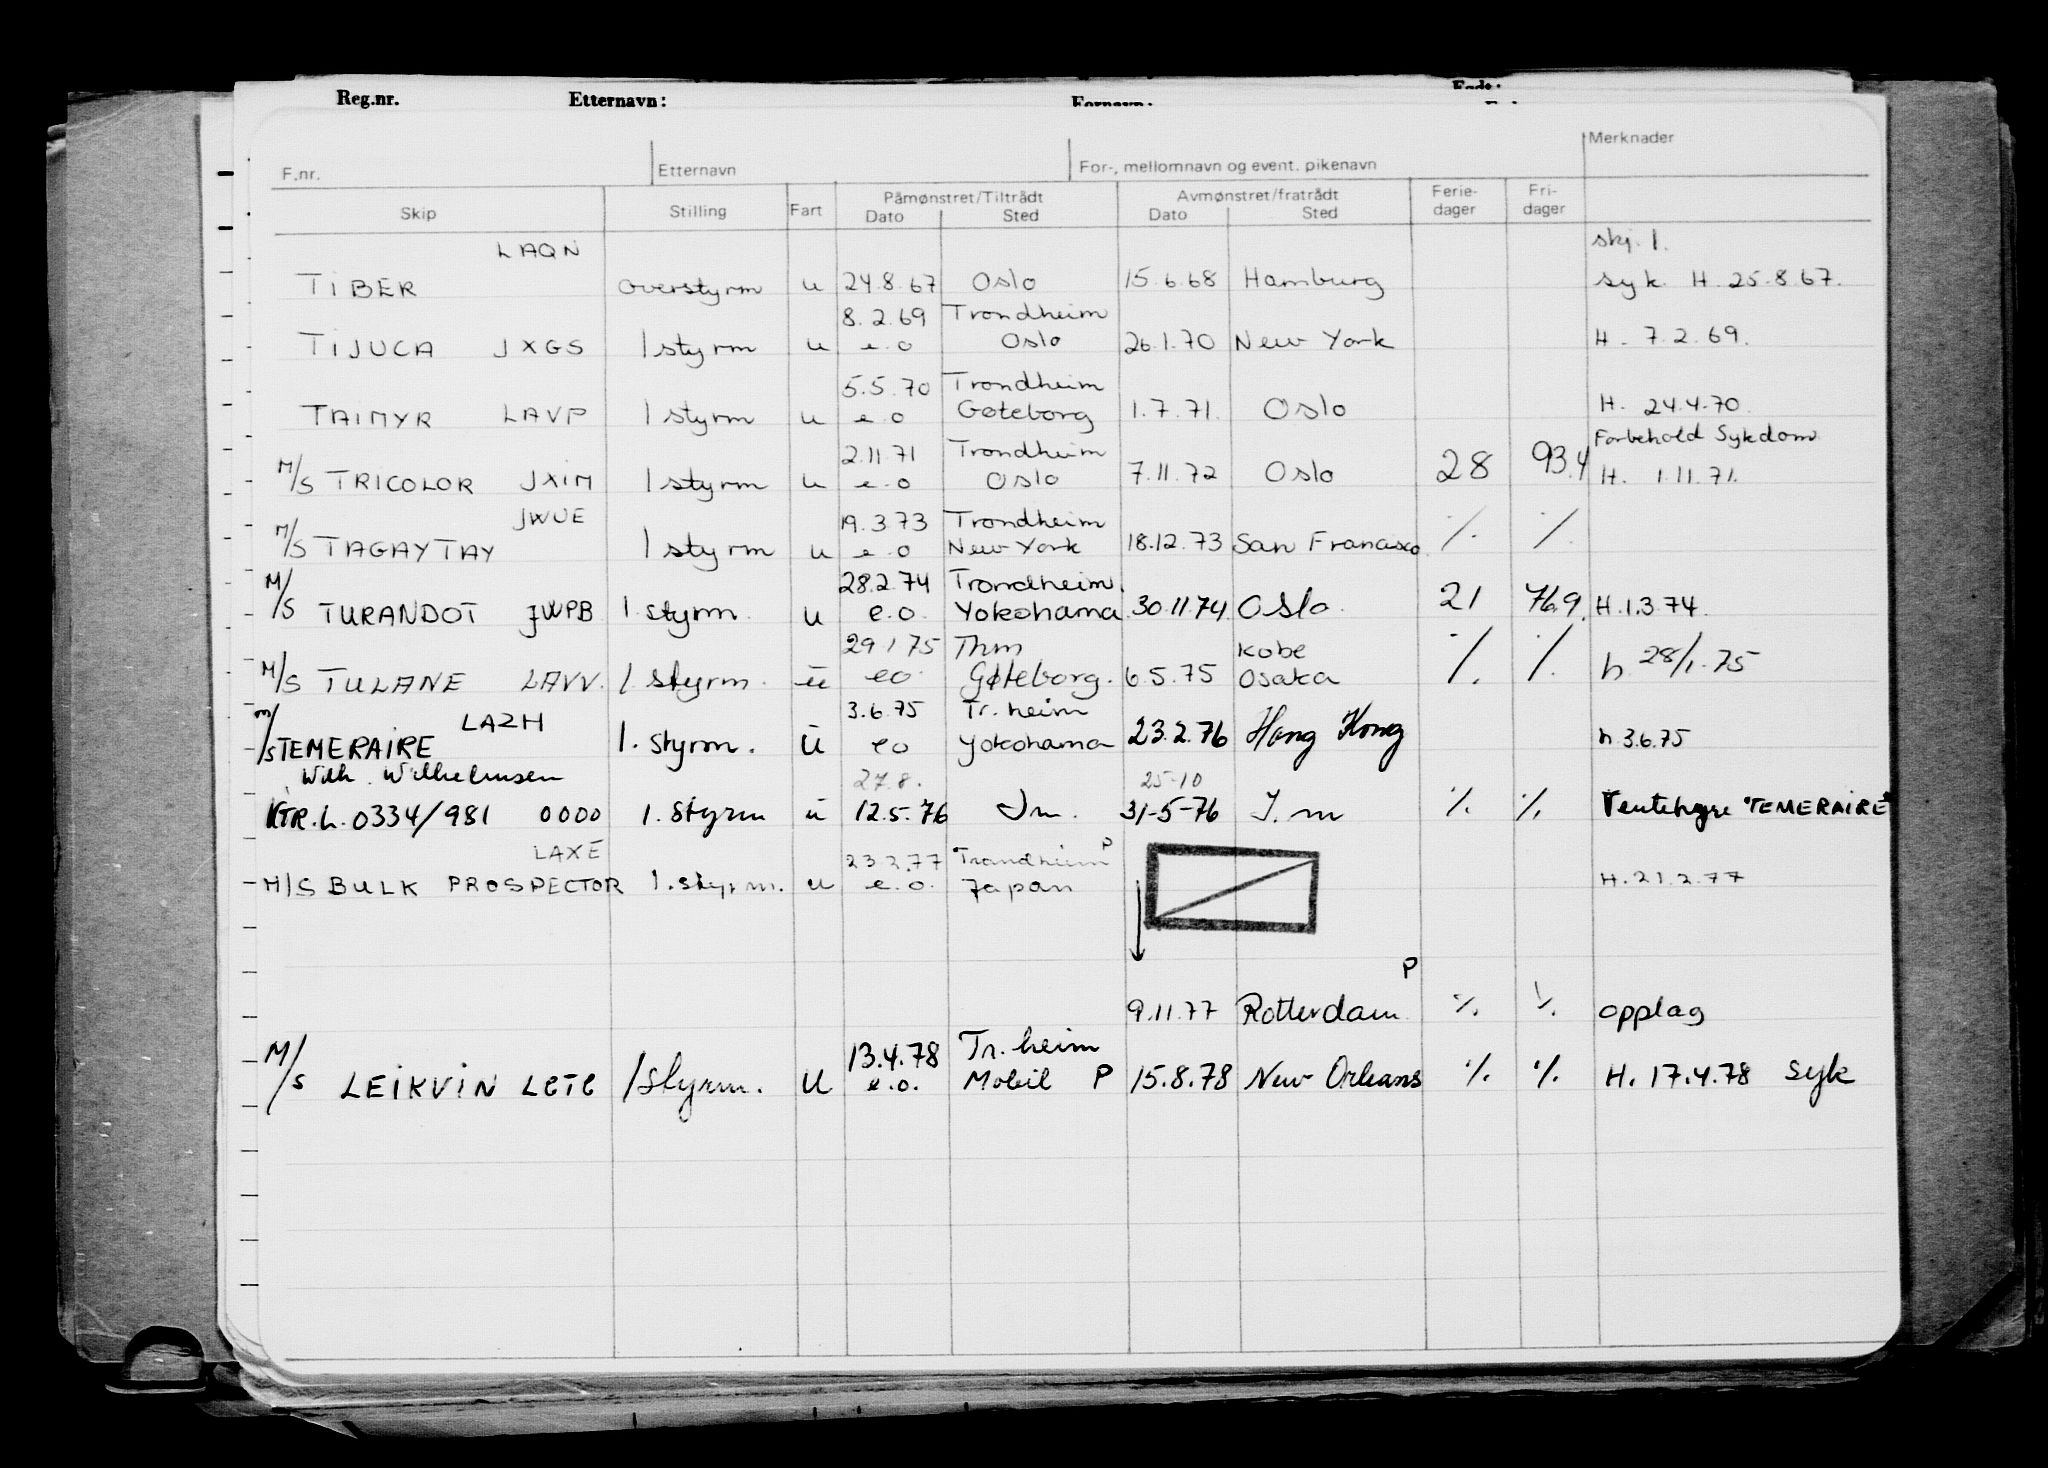 Reg.nr. Etternavn: Fornavn: Født:
Merknader
F.nr. Etternavn For-, mellomnavn og event. pikenavn
Skip Stilling Fart Påmønstret/Tiltrådt Avmønstret/fratrådt Ferie- Fri-
Dato Sted Dato Sted dager dager
LAQN skj. 1.
TIBER overstyrm u 24.8.67 Oslo 15.6.68 Hamburg syk H 25.8.67.
8.2.69 Trondheim
TIJUCA JXGS 1 styrm u e.o Oslo 26.1.70 New York H. 7.2.69.
5.5.70 Trondheim
TAIMYR LAVP 1 styrm u e.o Gøteborg 1.7.71. Oslo H. 24.4.70.
2.11.71 Trondheim Forbehold Sykdom
M/S TRICOLOR JXIM 1 styrm u e.o Oslo 7.11.72 Oslo 28 93.4 H. 1.11.71.
JWUE 19.3.73 Trondheim
M/S TAGAYTAY 1 styrm u e.o New York 18.12.73 San Francisco ./. ./.
28.2.74 Trondheim
M/S TURANDOT JWPB 1. styrm. u e.o. Yokohama 30.11.74 Oslo. 21 76.9. H.1.3.74.
29.1.75 Thm Kobe
M/S TULANE LAVV. 1. styrm. u eo. Gøteborg. 6.5.75 Osaka ./. ./. h 28/1.75
LAZH 3.6.75 Tr.heim
M/S TEMERAIRE 1. styrm. u eo Yokohama 23.2.76 Hong Kong h 3.6.75
Wilh. Wilhelmsen 27.8. 25-10
KTR.L.0334/981 0000 1. styrm u 12.5.76 J.m. 31-5-76 J.m ./. ./. Ventehyre "TEMERAIRE"
LAXE 23.2.77 Trondheim P
M/S BULK PROSPECTOR 1. styrm. u e.o. Japan H.21.2.77
P
9.11.77 Rotterdam ./. ./. opplag
13.4.78 Tr.heim
M/S LEIKVIN LETE 1 styrm. u e.o. Mobil P 15.8.78 New Orleans ./. ./. H. 17.4.78 syk